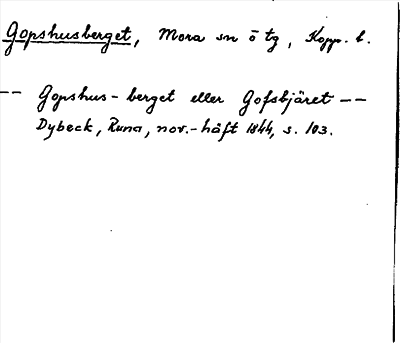 Gopshusberget, Mora sn ö tg, Kopp. l.
-- Gopshus-berget eller Gofsbjäret --
Dybeck, Runa, nov.-häft 1844, s. 103.